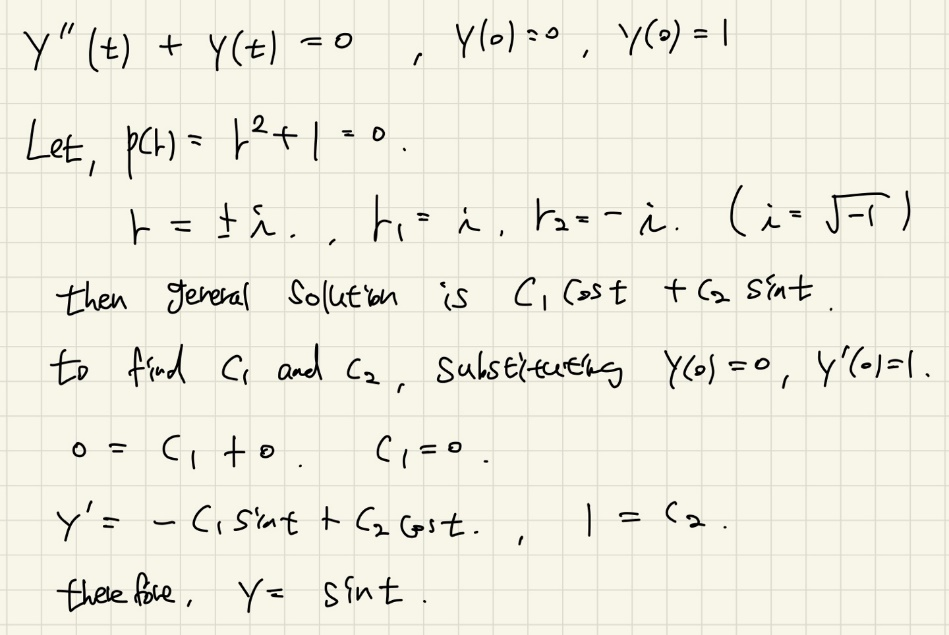 Y''(t) + Y(t) = 0 , Y(0) = 0 , Y(0) = 1
Let, p(r) = r² + 1 = 0.
r = ± i. , r₁ = i, r₂ = - i. (i = √-1)
then general solution is C₁ cost + C₂ sint.
to find C₁ and C₂, substituting Y(0) = 0, Y'(0) = 1.
0 = C₁ + 0. C₁ = 0.
Y' = - C₁ sint + C₂ cost. , 1 = C₂.
therefore, Y = sint.